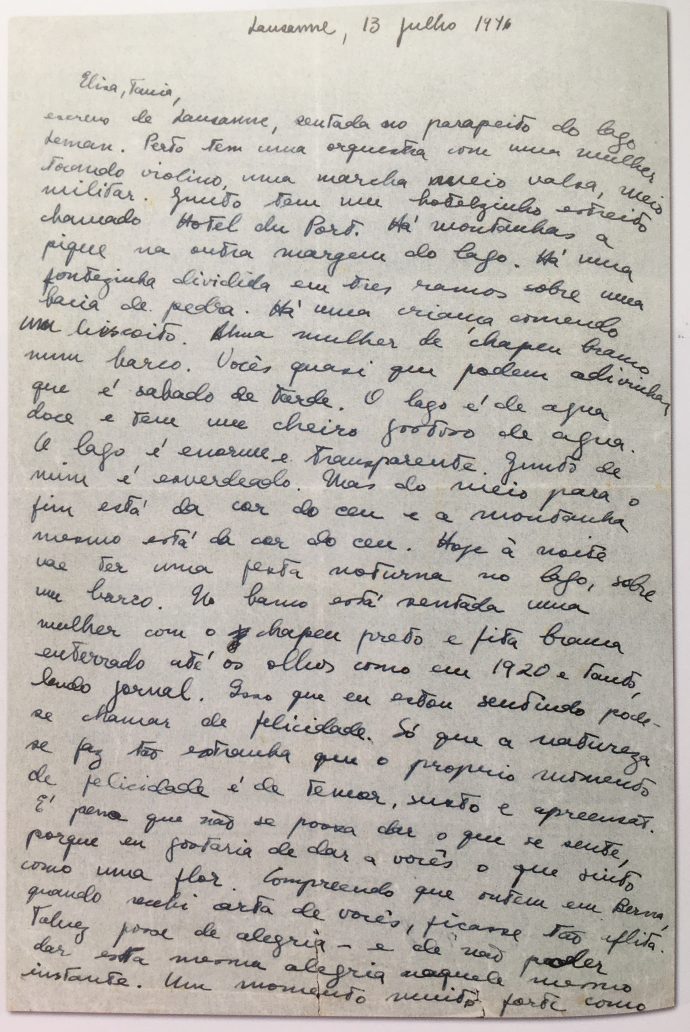 Lausanne, 13 julho 1946
Elisa, Tania,
escrevo de Lausanne, sentada no parapeito do lago
Leman. Perto tem uma orquestra com uma mulher
tocando violino, uma marcha meio valsa, meio
militar. Junto tem um hotelzinho estreito
chamado Hotel du Port. Há montanhas a
pique na outra margem do lago. Há uma
fontezinha dividida em tres ramos sobre uma
bacia de pedra. Há uma criança comendo
um biscoito. Uma mulher de chapeu branco
num barco. Vocês quasi que podem adivinhar
que é sabado de tarde. O lago é de agua
doce e tem um cheiro gostoso de agua.
O lago é enorme e transparente. Junto de
mim é esverdeado. Mas do meio para o
fim está da cor do ceu e a montanha
mesmo está da cor do ceu. Hoje à noite
vae ter uma festa noturna no lago, sobre
um barco. No banco está sentada uma
mulher com o chapeu preto e fita branca
enterrado até os olhos como em 1920 e tanto,
lendo jornal. Isso que eu estou sentindo pode-
se chamar de felicidade. Só que a natureza
se faz tão estranha que o proprio momento
de felicidade é de temor, susto e apreensão.
É pena que não se possa dar o que se sente,
porque eu gostaria de dar a vocês o que sinto
como uma flor. Compreendo que ontem em Berna,
quando recebi carta de vocês, ficasse tão aflita.
Talvez fosse de alegria – e de não poder
dar esta mesma alegria naquele mesmo
instante. Um momento muito forte como